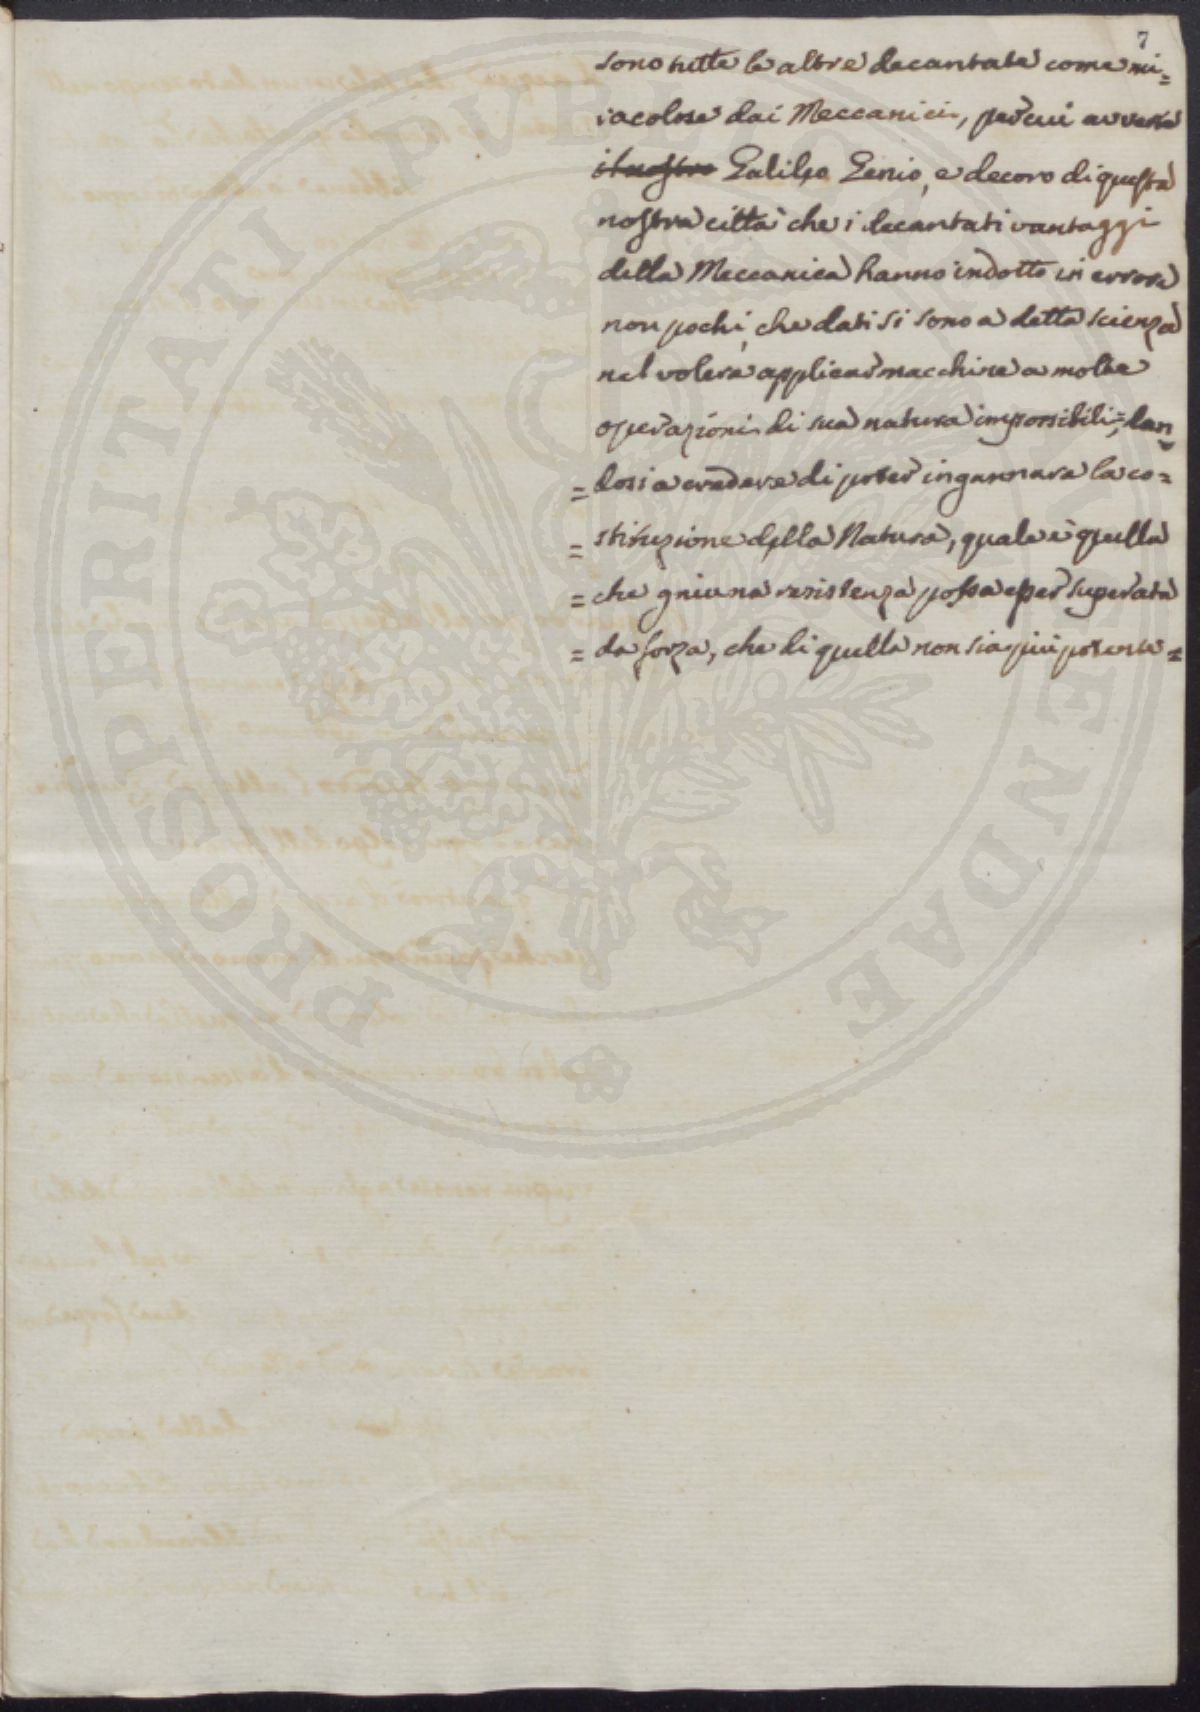 7
sono tutte le altre decantate come mi=
racolose dai Meccanici, per cui avverte
il nostro Galileo Genio, e decoro di questa
nostra città che i decantati vantaggi
della Meccanica hanno indotto in errore
non pochi, che dati si sono a detta scienza
nel volere applicar macchine a molte
operazioni di sua natura impossibili =, dan
= dosi a credere di poter ingannare la co=
= stituzione della Natura, quale è quella
= che gniuna resistenza possa esser superata
= da forza, che di quella non sia più potente =
PROSPERITATI PUBLICAE AUGENDAE